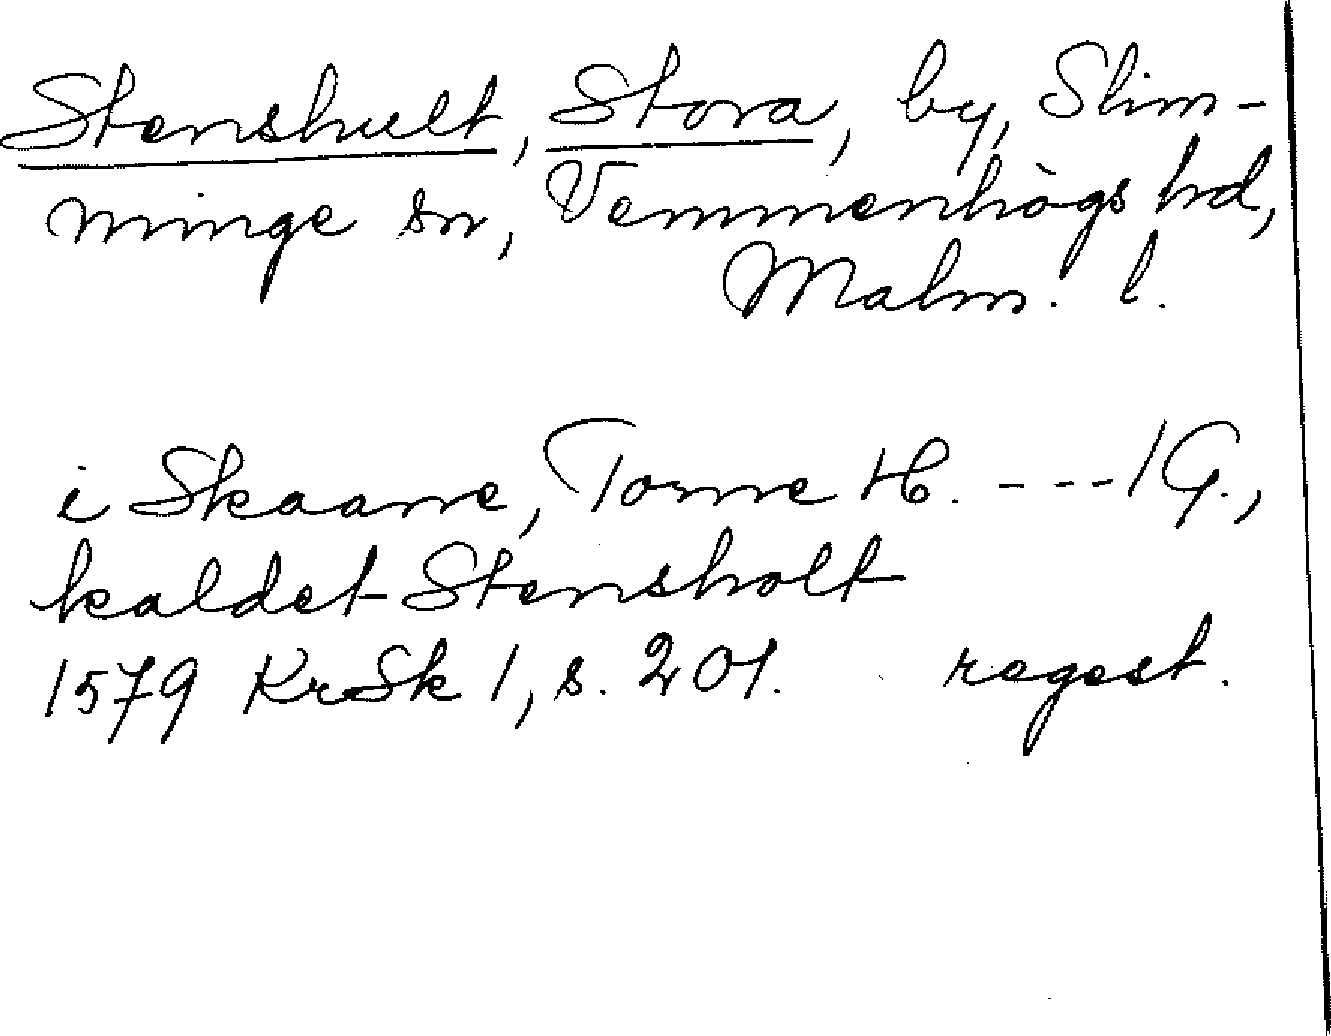 Stenshult, Stora, by, Slim-
minge sn, Vemmenhögs hd,
Malm. l.
i Skaane, Torne H. ---1 G.,
kaldet Stensholt
1579 KrSk 1, s. 201. regest.